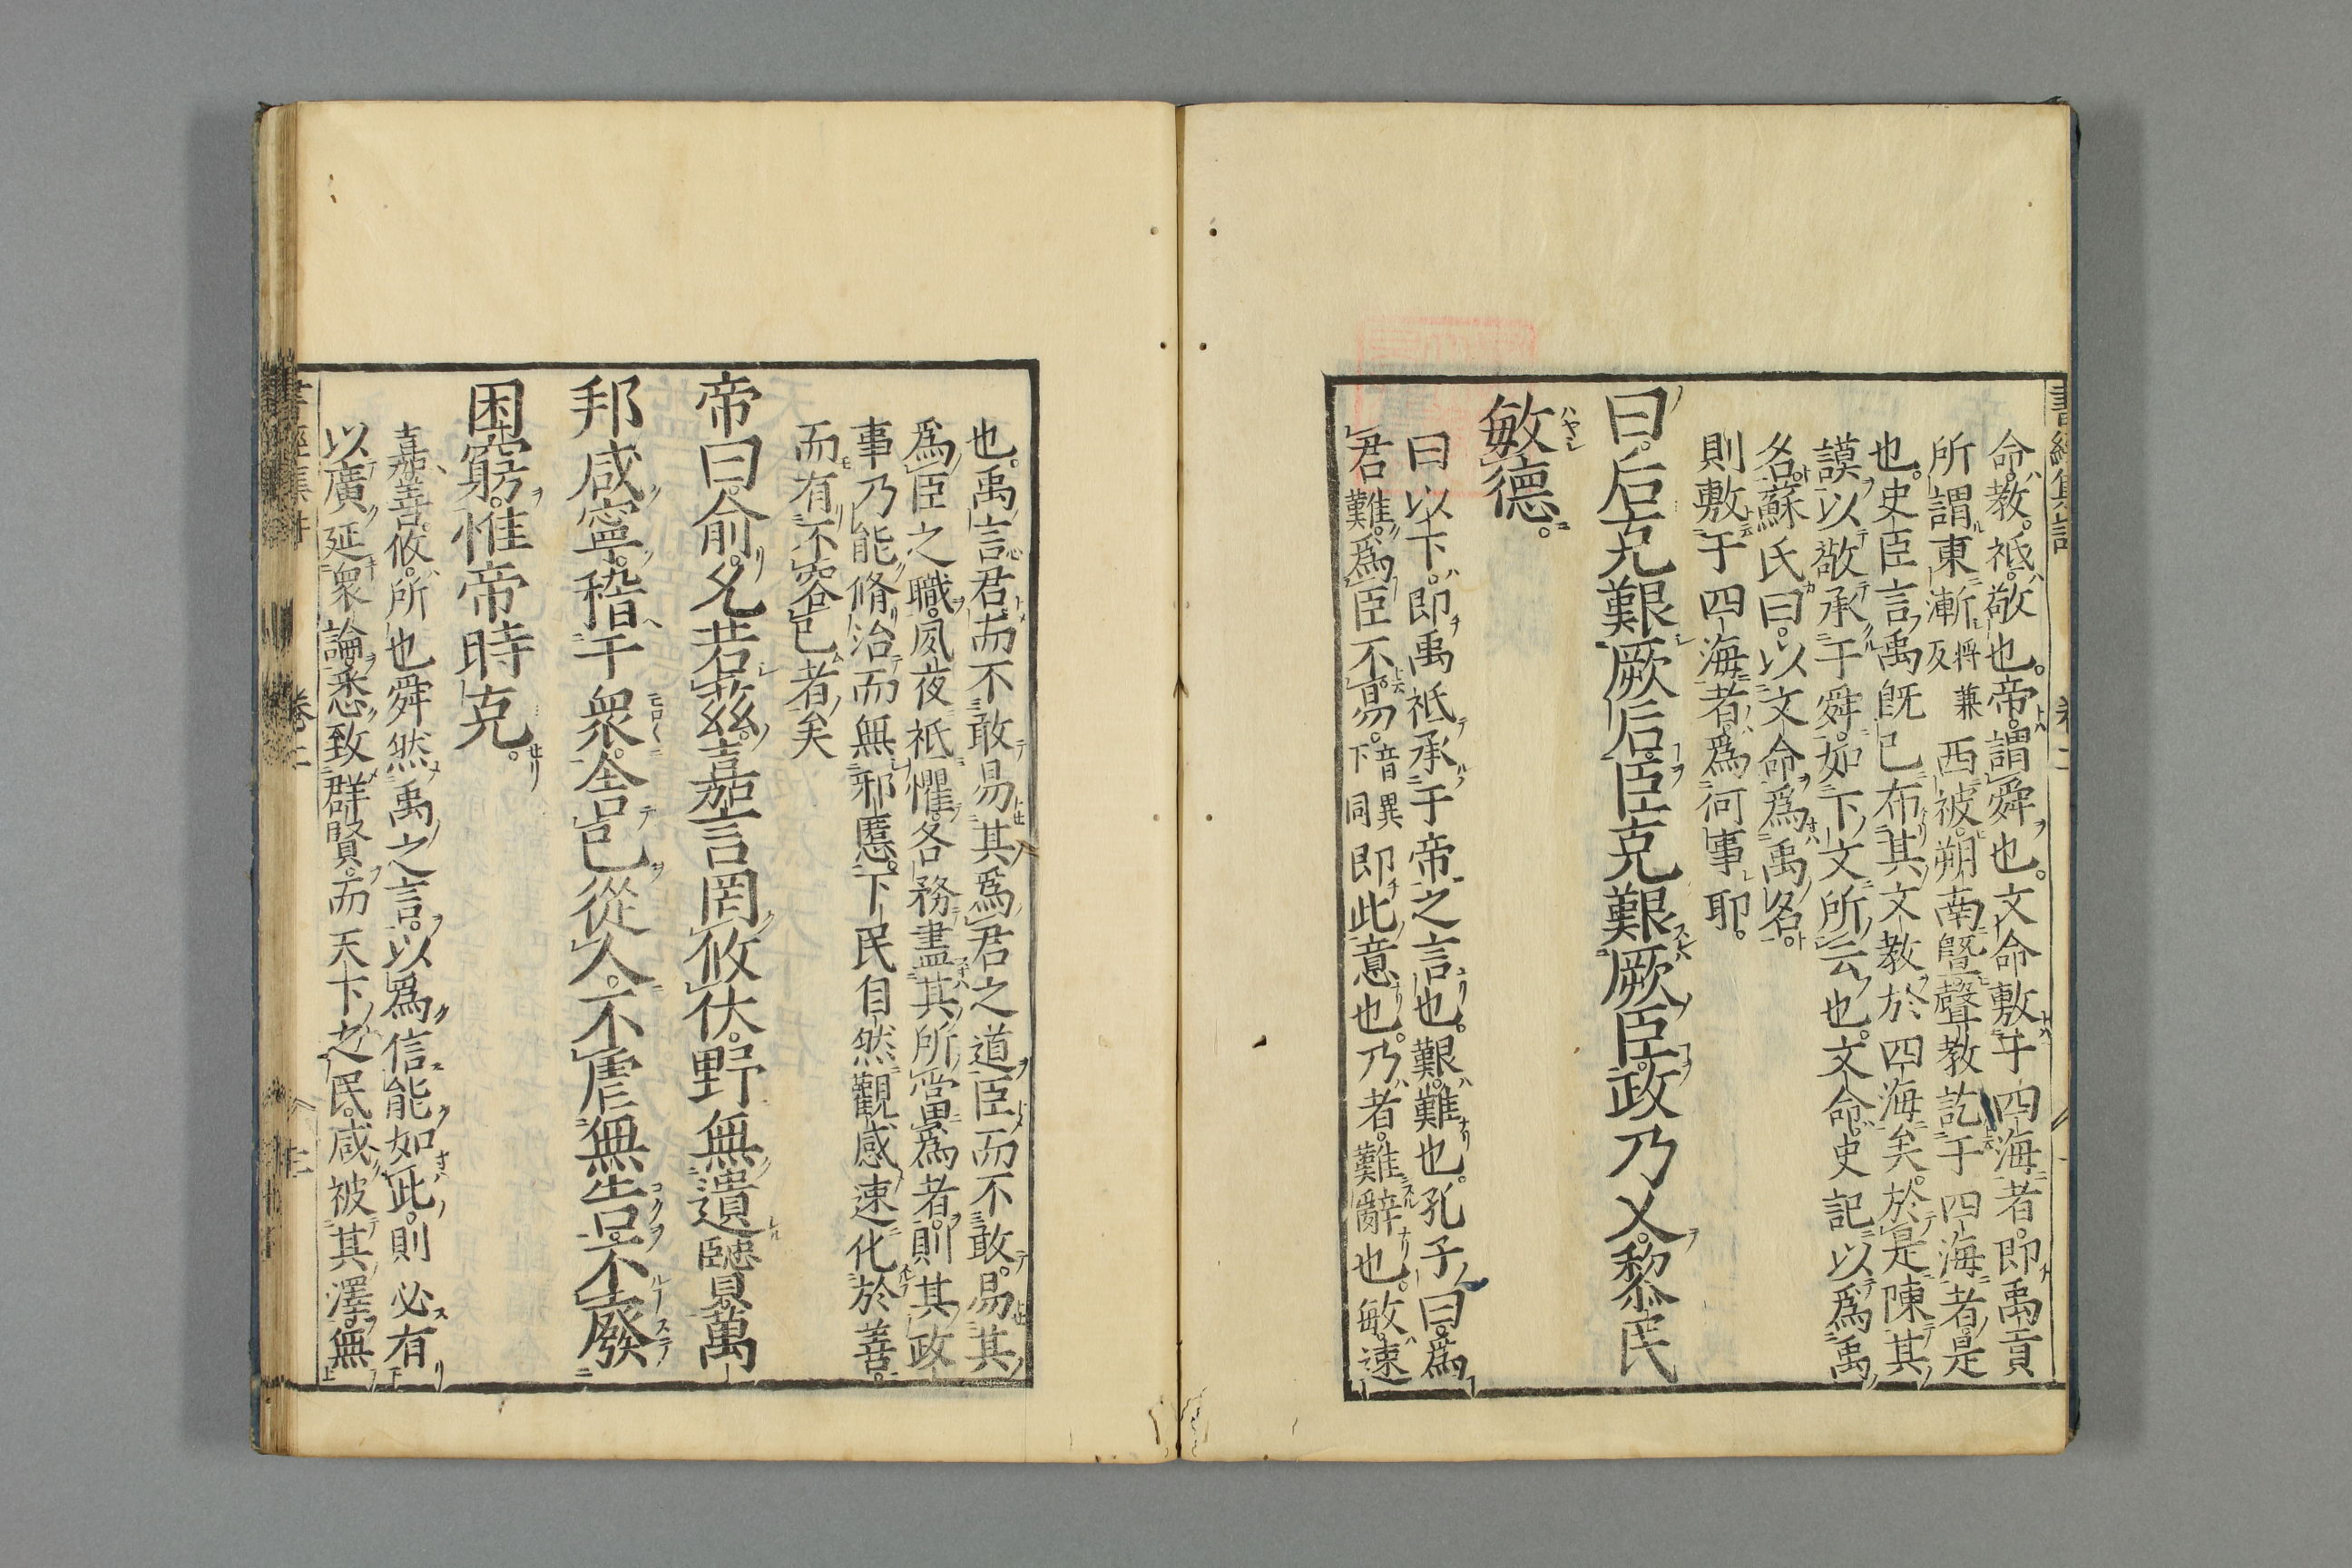 命教祗敬也帝謂舜也文命敷于四海者即禹貢
所謂東漸將兼反西被朔南曁聲教訖于四海者是
也史臣言禹既已布其文教於四海矣於是陳其
謨以敬承于舜如下文所云也文命史記以爲禹
名蘇氏曰以文命爲禹名
則敷于四海者爲何事耶
曰后克艱厥后臣克艱厥臣政乃乂黎民
敏德
曰以下即禹祗承于帝之言也艱難也孔子曰爲
君難爲臣不易音異下同即此意也乃者難辭也敏速
也禹言君而不敢易其爲君之道臣而不敢易其
爲臣之職夙夜祗懼各務盡其所當爲者則其政
事乃能脩治而無邪慝下民自然觀感速化於善
而有不容已者矣
帝曰俞允若茲嘉言罔攸伏野無遺賢萬
邦咸寧稽于衆舍己從人不虐無告不廢
困窮惟帝時克
嘉善攸所也舜然禹之言以爲信能如此則必有
以廣延衆論悉致群賢而天下之民咸被其澤無